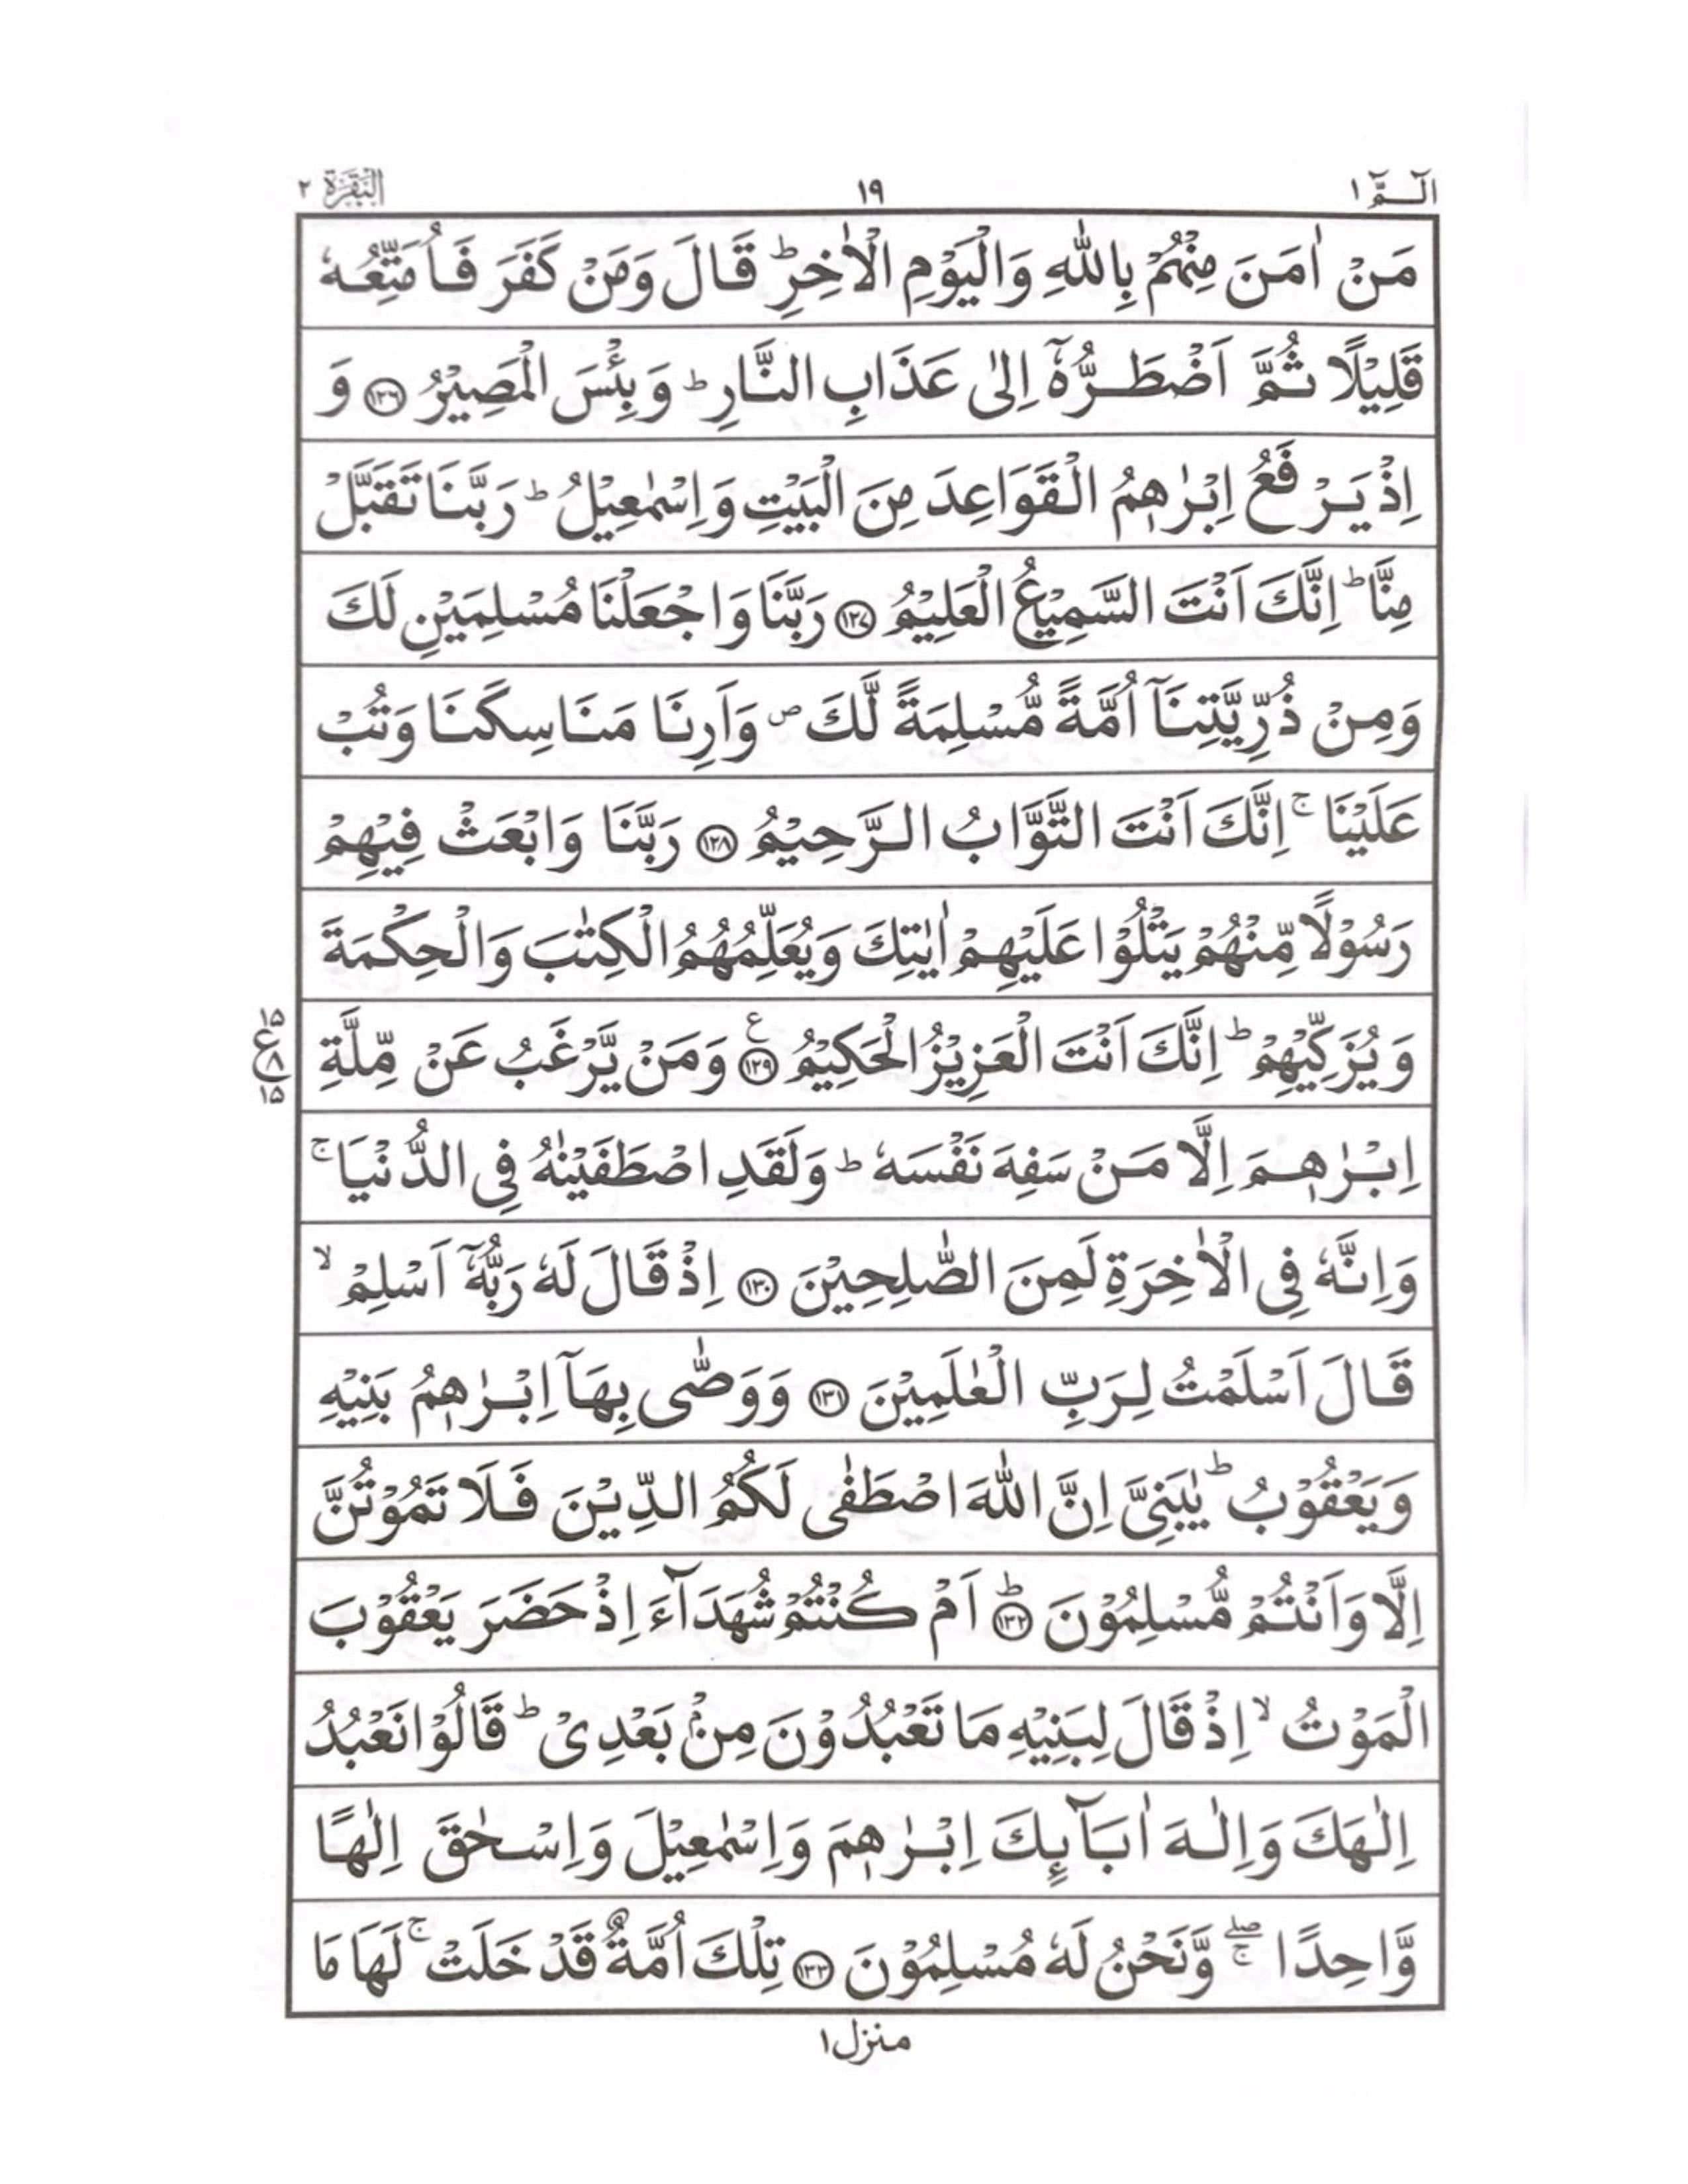 الٓـمّٓ ١
١٩
البَقَرَة ٢
مَنْ اٰمَنَ مِنْهُمْ بِاللّٰهِ وَالْيَوْمِ الْاٰخِرِ ؕ قَالَ وَمَنْ كَفَرَ فَاُمَتِّعُهٗ
قَلِيْلًا ثُمَّ اَضْطَرُّهٗۤ اِلٰى عَذَابِ النَّارِ ؕ وَبِئْسَ الْمَصِيْرُ ﴿۱۲۶﴾ وَ
اِذْ يَرْفَعُ اِبْرٰهٖمُ الْقَوَاعِدَ مِنَ الْبَيْتِ وَاِسْمٰعِيْلُ ؕ رَبَّنَا تَقَبَّلْ
مِنَّا ؕ اِنَّكَ اَنْتَ السَّمِيْعُ الْعَلِيْمُ ﴿۱۲۷﴾ رَبَّنَا وَاجْعَلْنَا مُسْلِمَيْنِ لَكَ
وَمِنْ ذُرِّيَّتِنَاۤ اُمَّةً مُّسْلِمَةً لَّكَ ص وَاَرِنَا مَنَاسِكَنَا وَتُبْ
عَلَيْنَا ۚ اِنَّكَ اَنْتَ التَّوَّابُ الرَّحِيْمُ ﴿۱۲۸﴾ رَبَّنَا وَابْعَثْ فِيْهِمْ
رَسُوْلًا مِّنْهُمْ يَتْلُوْا عَلَيْهِمْ اٰيٰتِكَ وَيُعَلِّمُهُمُ الْكِتٰبَ وَالْحِكْمَةَ
وَيُزَكِّيْهِمْ ؕ اِنَّكَ اَنْتَ الْعَزِيْزُ الْحَكِيْمُ ﴿۱۲۹﴾ ع وَمَنْ يَّرْغَبُ عَنْ مِّلَّةِ
۱۵ ع ۸ ۱۵
اِبْرٰهٖمَ اِلَّا مَنْ سَفِهَ نَفْسَهٗ ؕ وَلَقَدِ اصْطَفَيْنٰهُ فِى الدُّنْيَا ۚ
وَاِنَّهٗ فِى الْاٰخِرَةِ لَمِنَ الصّٰلِحِيْنَ ﴿۱۳۰﴾ اِذْ قَالَ لَهٗ رَبُّهٗۤ اَسْلِمْ ۙ
قَالَ اَسْلَمْتُ لِرَبِّ الْعٰلَمِيْنَ ﴿۱۳۱﴾ وَوَصّٰى بِهَاۤ اِبْرٰهٖمُ بَنِيْهِ
وَيَعْقُوْبُ ؕ يٰبَنِىَّ اِنَّ اللّٰهَ اصْطَفٰى لَكُمُ الدِّيْنَ فَلَا تَمُوْتُنَّ
اِلَّا وَاَنْتُمْ مُّسْلِمُوْنَ ﴿۱۳۲﴾ؕ اَمْ كُنْتُمْ شُهَدَآءَ اِذْ حَضَرَ يَعْقُوْبَ
الْمَوْتُ ۙ اِذْ قَالَ لِبَنِيْهِ مَا تَعْبُدُوْنَ مِنْۢ بَعْدِىْ ؕ قَالُوْا نَعْبُدُ
اِلٰهَكَ وَاِلٰهَ اٰبَآئِكَ اِبْرٰهٖمَ وَاِسْمٰعِيْلَ وَاِسْحٰقَ اِلٰهًا
وَّاحِدًا ۖۚ وَّنَحْنُ لَهٗ مُسْلِمُوْنَ ﴿۱۳۳﴾ تِلْكَ اُمَّةٌ قَدْ خَلَتْ ۚ لَهَا مَا
منزل ۱